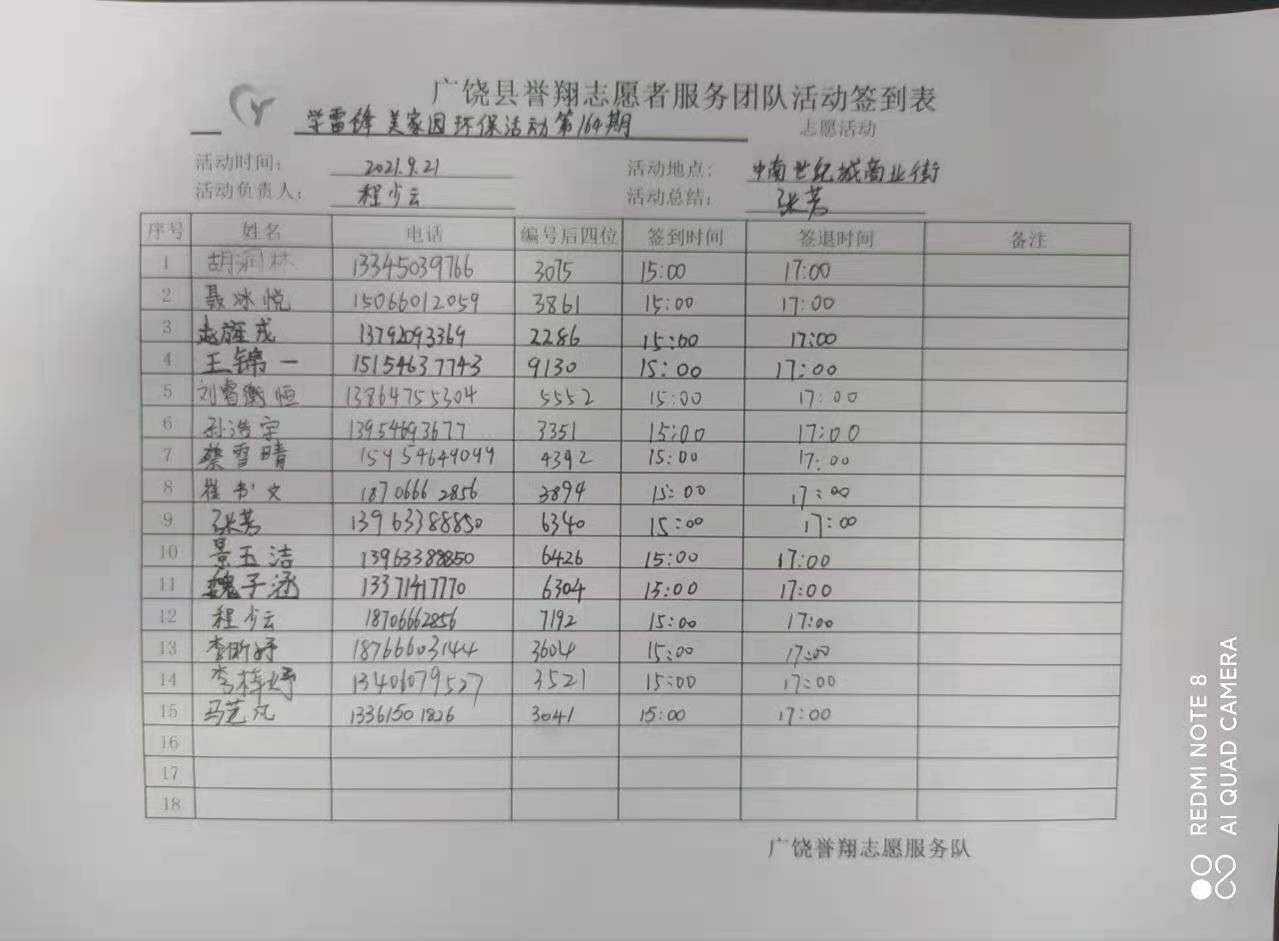 广饶县誉翔志愿者服务团队活动签到表
学雷锋 美家园 环保活动 第164期 志愿活动
活动时间: 2021.9.21 活动地点: 中南世纪城商业街
活动负责人: 程少云 活动总结: 张芳
序号 姓名 电话 编号后四位 签到时间 签退时间 备注
1 胡润林 13345039766 3075 15:00 17:00
2 聂冰悦 15066012059 3861 15:00 17:00
3 13792093369 2286 15:00 17:00
4 王锦一 15154637743 9130 15:00 17:00
5 刘睿衡恒 13864755304 5552 15:00 17:00
6 孙浩宇 13954693677 3351 15:00 17:00
7 蔡雪晴 15954649099 4392 15:00 17:00
8 崔书文 18706662856 3894 15:00 17:00
9 张芳 13963388850 6340 15:00 17:00
10 景玉洁 13963388850 6426 15:00 17:00
11 魏子涵 13371417770 6304 15:00 17:00
12 程少云 18706662856 7192 15:00 17:00
13 李昕妤 18766603144 3604 15:00 17:00
14 李梓妤 13401079527 3521 15:00 17:00
15 马艺凡 13361501826 3041 15:00 17:00
16
17
18
广饶誉翔志愿服务队
REDMI NOTE 8
AI QUAD CAMERA